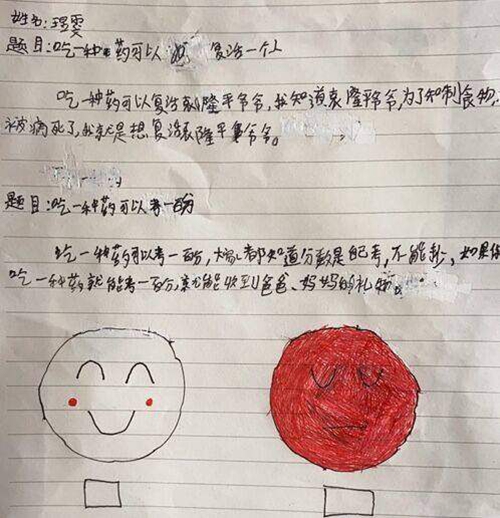 姓名:瑆雯
题目:吃一种药可以复活一个人
吃一种药可以复活袁隆平爷爷,我知道袁隆平爷爷,为了知制食物
被病死了,我就是想复活袁隆平爷爷。
题目:吃一种药可以考一百分
吃一种药可以考一百分,大家都知道分数是自己考,不能抄,如果你
吃一种药就能考一百分,就能收到爸爸、妈妈的礼物